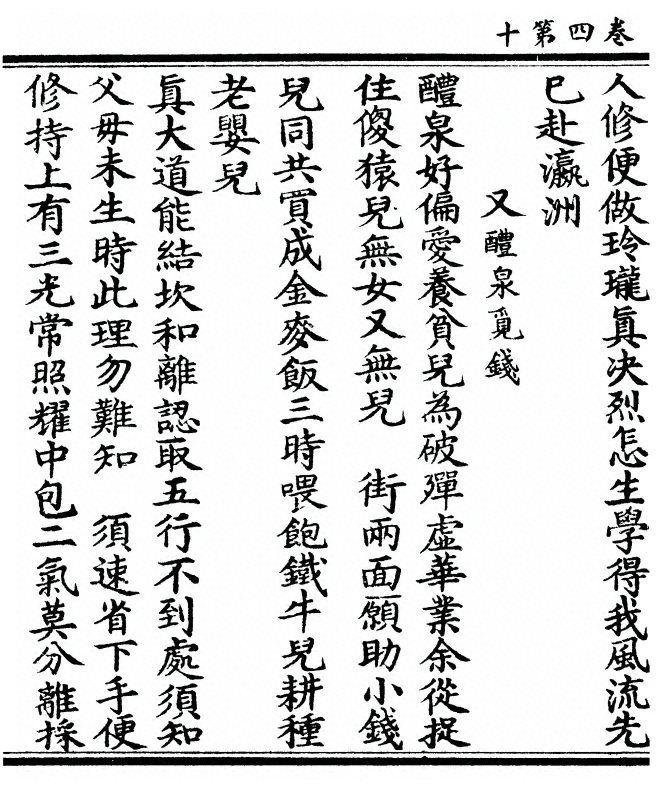 卷四第十
人修便做玲瓏眞决烈怎生學得我風流先
已赴瀛洲
又醴泉覓錢
醴泉好偏愛養貧兒為破彈虛華業余從捉
住傻猿兒無女又無兒　街兩面願助小錢
兒同共買成金麥飯三時喂飽鐵牛兒耕種
老嬰兒
眞大道能結坎和離認取五行不到處須知
父毋未生時此理勿難知　須速省下手便
修持上有三光常照耀中包二氣莫分離採